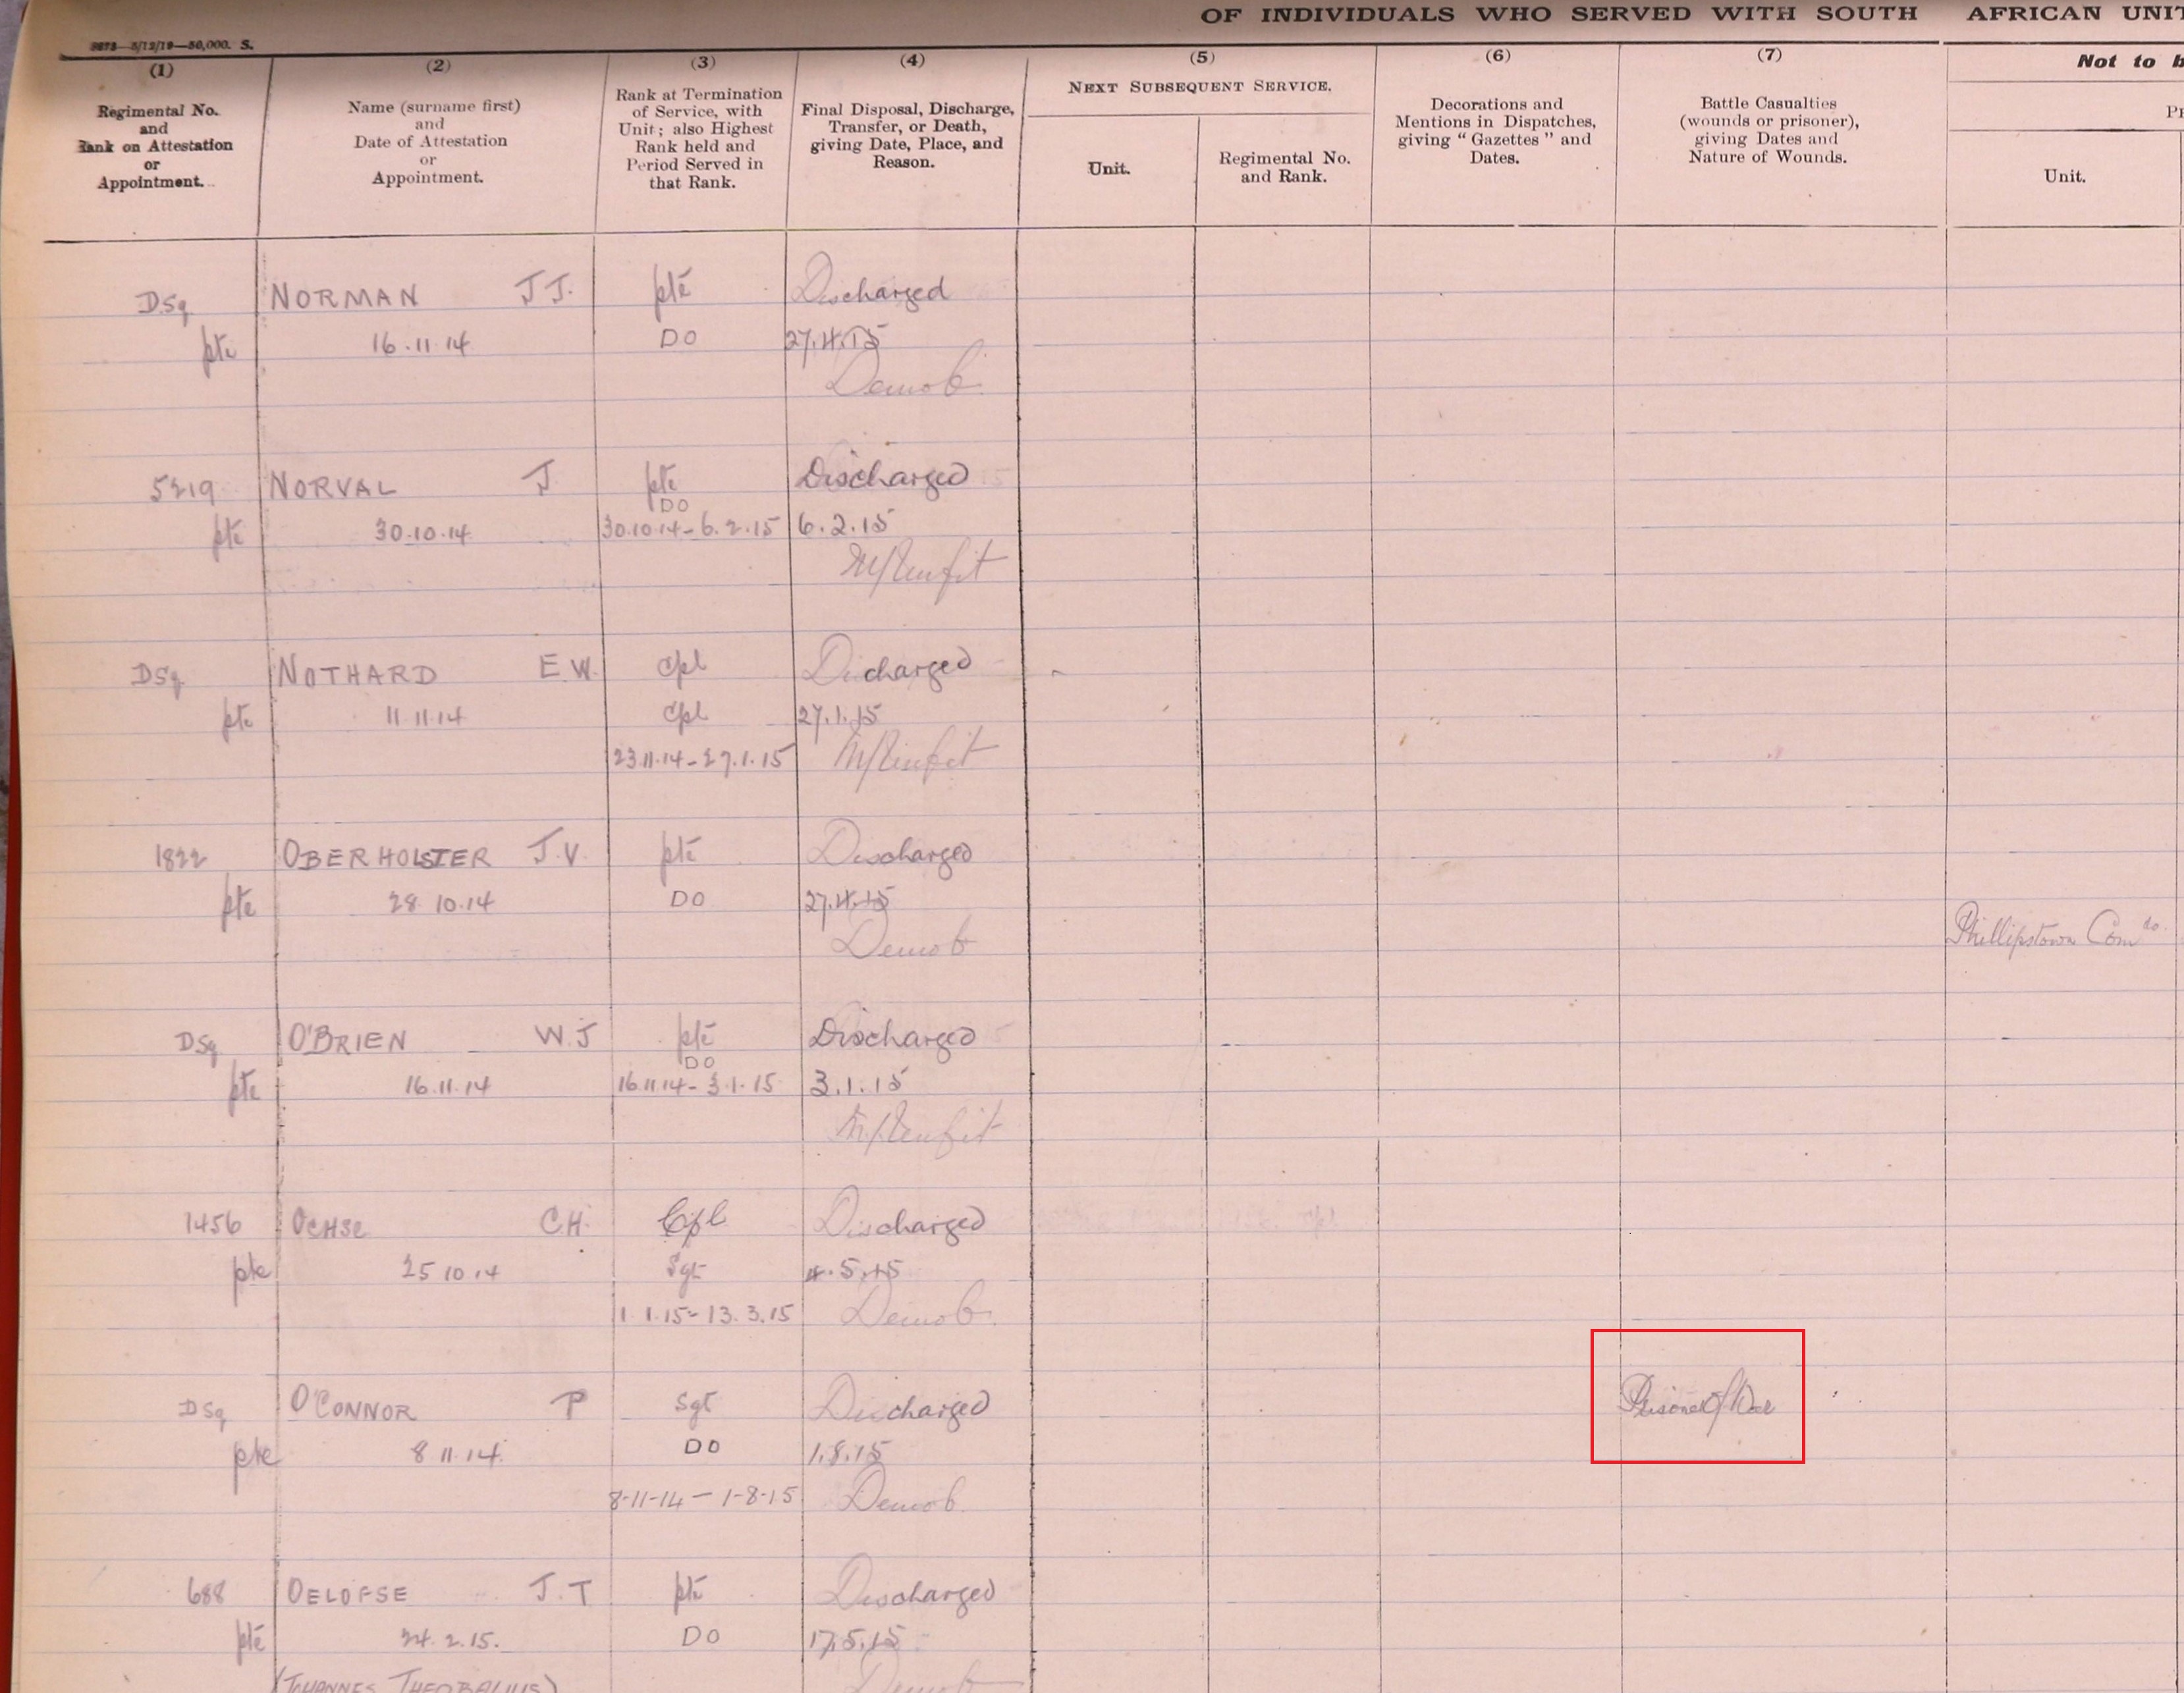 OF INDIVIDUALS WHO SERVED WITH SOUTH AFRICAN UNIT
8673—5/12/19—50,000. S.
(1) (2) (3) (4) (5) (6) (7) Not to b
Regimental No. and Rank on Attestation or Appointment.
Name (surname first) and Date of Attestation or Appointment.
Rank at Termination of Service, with Unit; also Highest Rank held and Period Served in that Rank.
Final Disposal, Discharge, Transfer, or Death, giving Date, Place, and Reason.
NEXT SUBSEQUENT SERVICE.
Unit. Regimental No. and Rank.
Decorations and Mentions in Dispatches, giving “ Gazettes ” and Dates.
Battle Casualties (wounds or prisoner), giving Dates and Nature of Wounds.
Unit.
DSq NORMAN J J. pte Discharged
pte 16.11.14 DO 27.4.15
Demob.
5219 NORVAL J pte Discharged
DO
pte 30.10.14 30.10.14-6.2.15 6.2.15
M/unfit
DSq NOTHARD E W. Cpl Dicharged
pte 11 11.14 Cpl 27.1.15
23.11.14-27.1.15 M/unfit
1822 OBERHOLSTER J.V pte Discharged
pte 28.10.14 DO 27.4.15 Phillipstown Comdo.
Demob
DSq O'BRIEN W.J pte Discharged
DO
pte 16.11.14 16.11.14-3.1.15 3.1.15
M/unfit
1456 OCHSE C.H. Cpl Discharged
pte 25 10.14 Sgt 4.5.15
1.1.15-13.3.15 Demob.
DSq O'CONNOR P Sgt Discharged Prisoner of War
pte 8 11.14. DO 1.8.15
8-11-14-1-8-15 Demob.
688 OELOFSE J.T pte Discharged
pte 24.2.15. DO 17.5.15
(JOHANNES THEOBALIUS) Demob